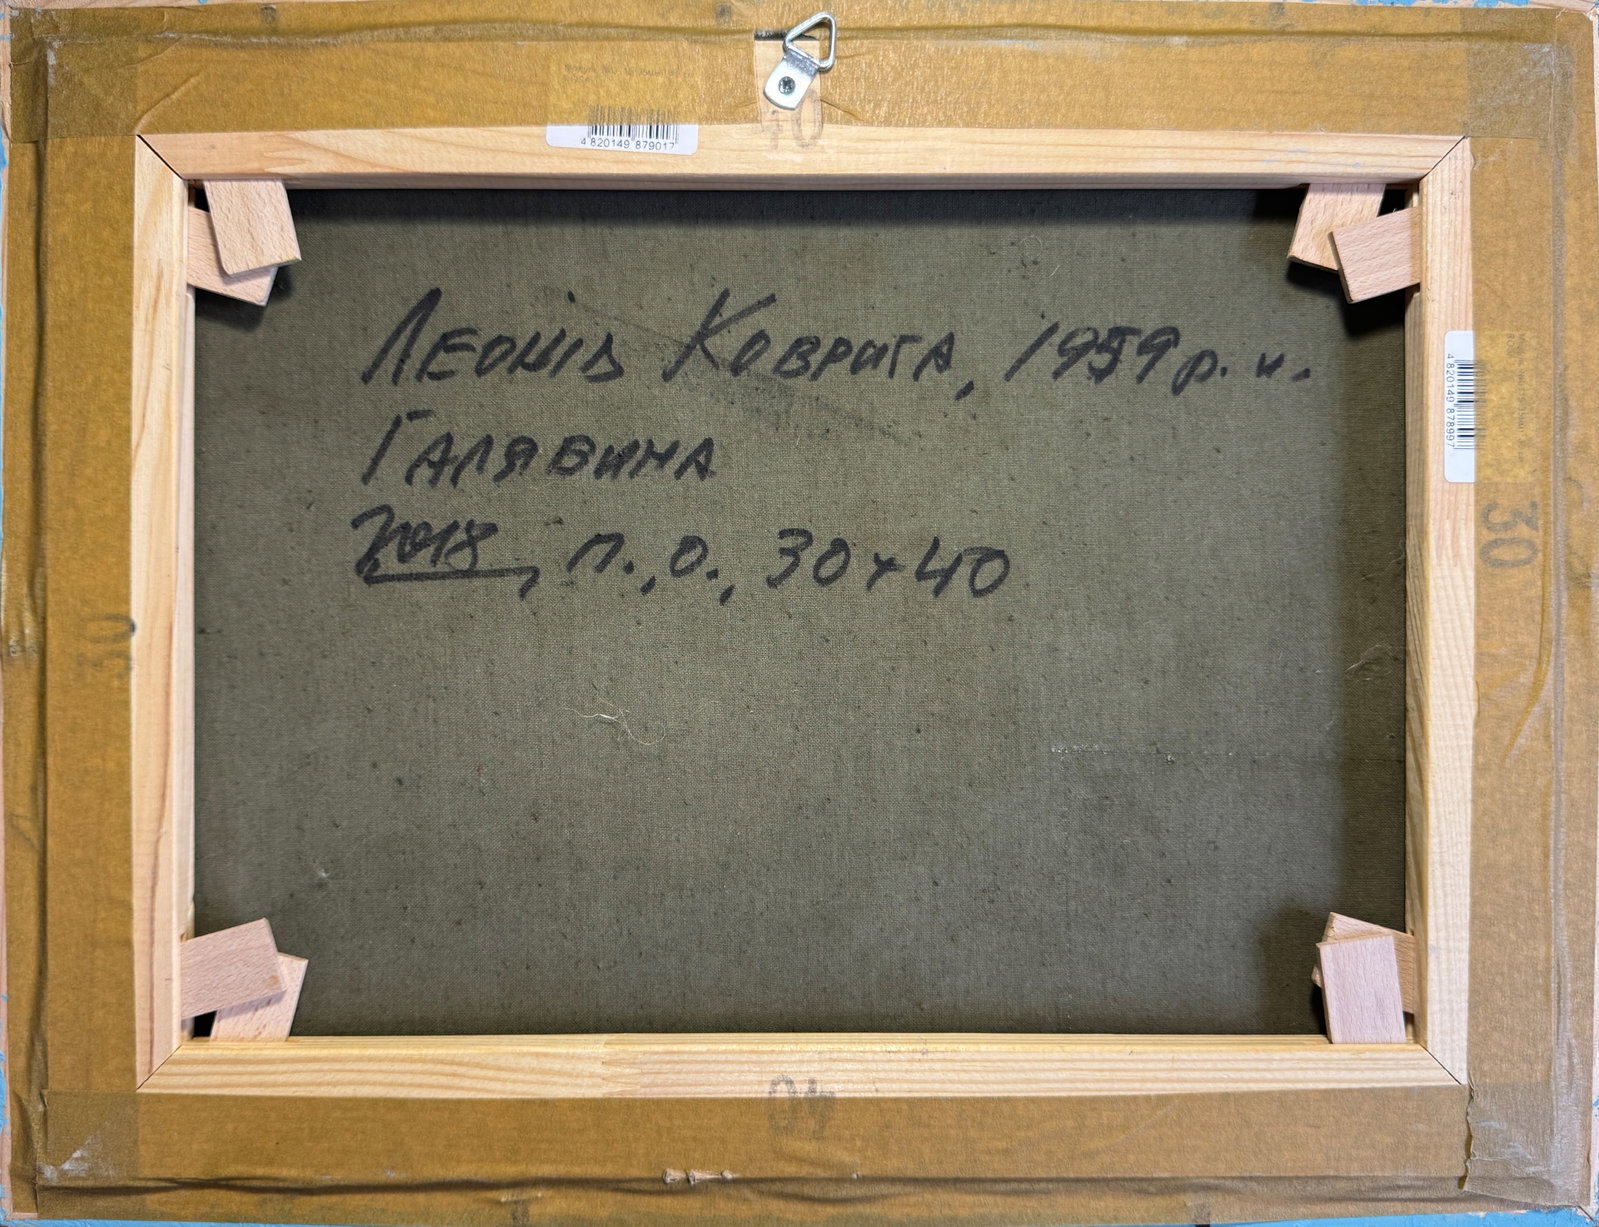 40
4 820149 879017
Леонід Коврига, 1959 р. н.
Галявина
2018, п., о., 30 x 40
4 820149 878997
30
30
40